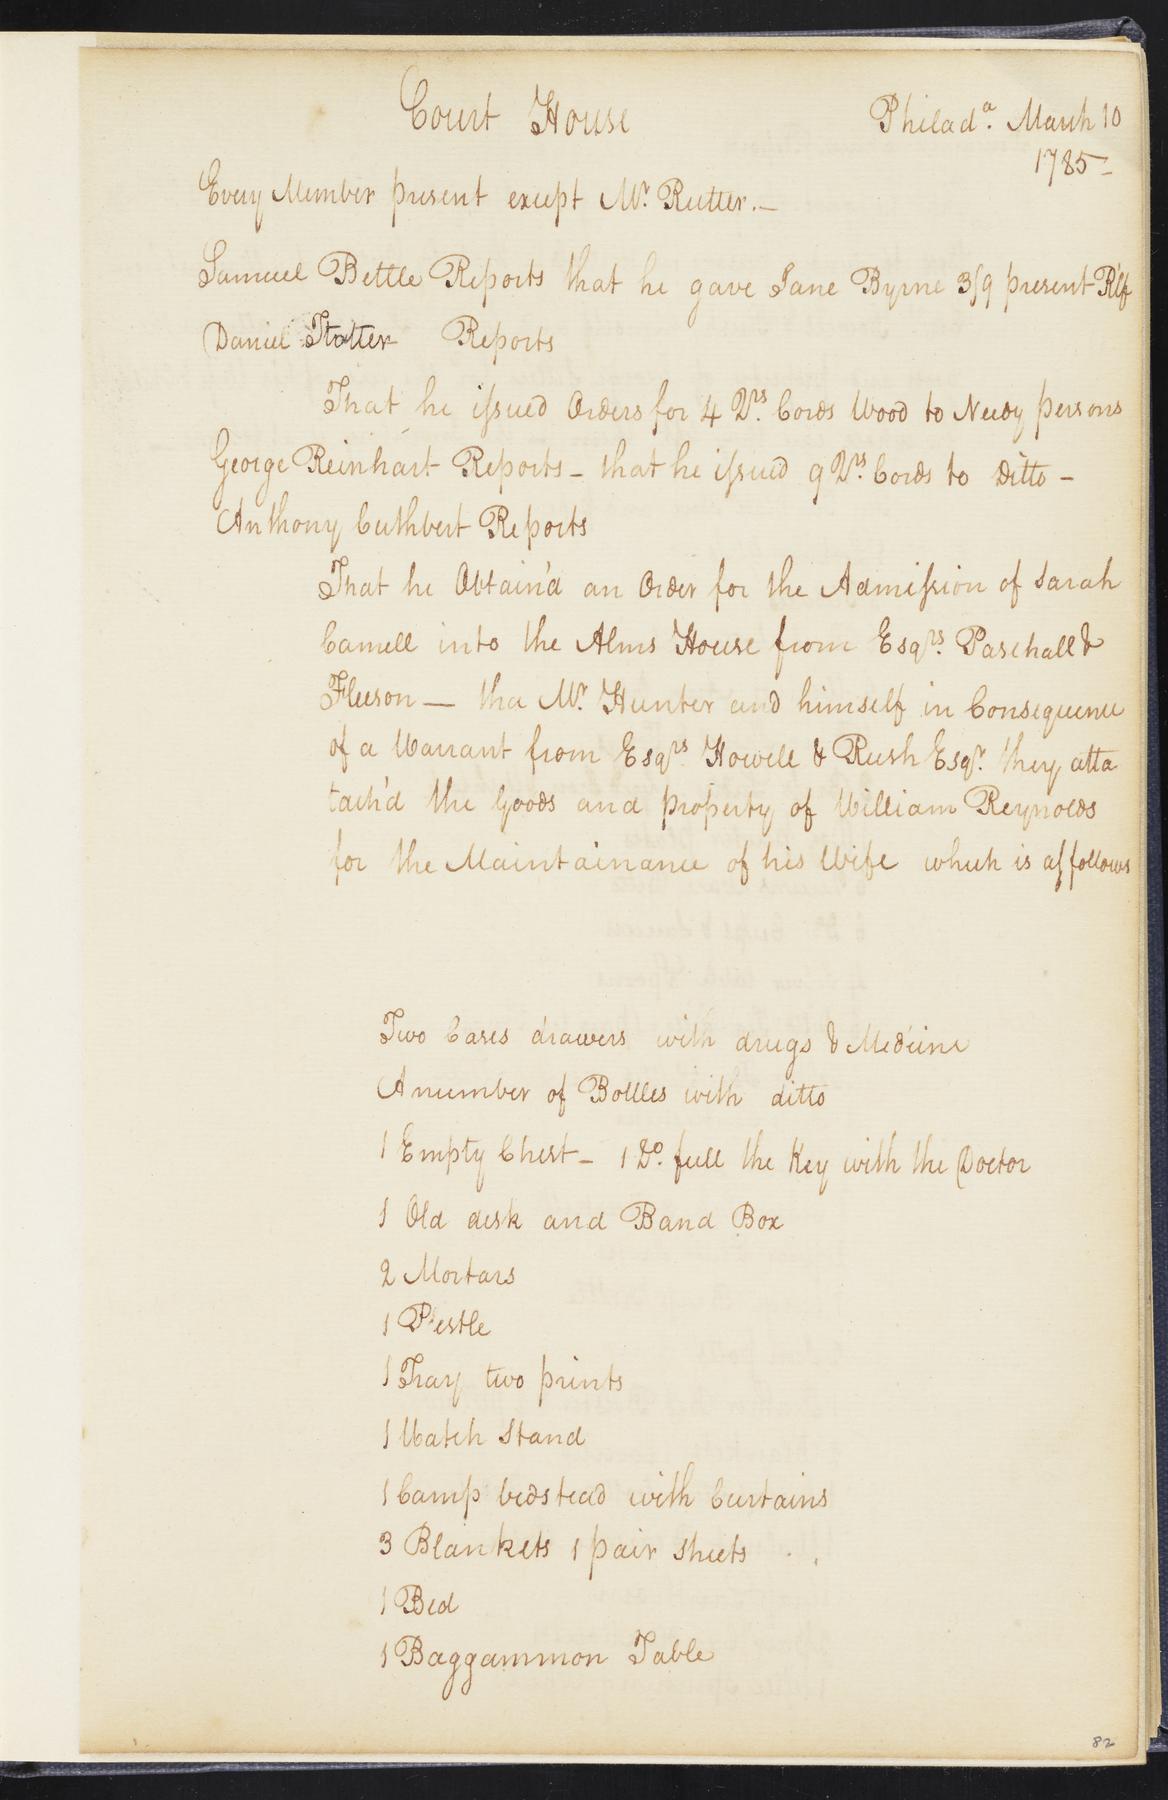 Court House
Philadᵃ. March 10
1785–
Every Member present except Mʳ. Rutter.—
Samuel Bettle Reports that he gave Jane Byrne 3/9 present Rlf
Daniel Reports
That he issued Orders for 4 Qʳˢ. Cords Wood to Needy persons
George Reinhart Reports – that he issued 9 Qʳˢ. Cords to Ditto –
Anthony Cuthbert Reports
That he Obtain'd an Order for the Admission of Sarah
Camell into the Alms House from Esqʳˢ. Paschall &
Fleeson — tha Mʳ. Hunter and himself in Consequence
of a Warrant from Esqʳˢ Howell & Rush Esqʳ. they atta
tach'd the Goods and property of William Reynolds
for the Maintainance of his Wife which is as follows
Two Cases drawers with drugs & Medicine
A number of Bottles with ditto
1 Empty Chest – 1 Dᵒ. full the Key with the Doctor
1 Old desk and Band Box
2 Mortars
1 Pestle
1 Tray two prints
1 Watch Stand
1 Camp bedstead with Curtains
3 Blankets 1 pair sheets
1 Bed
1 Baggammon Table
82